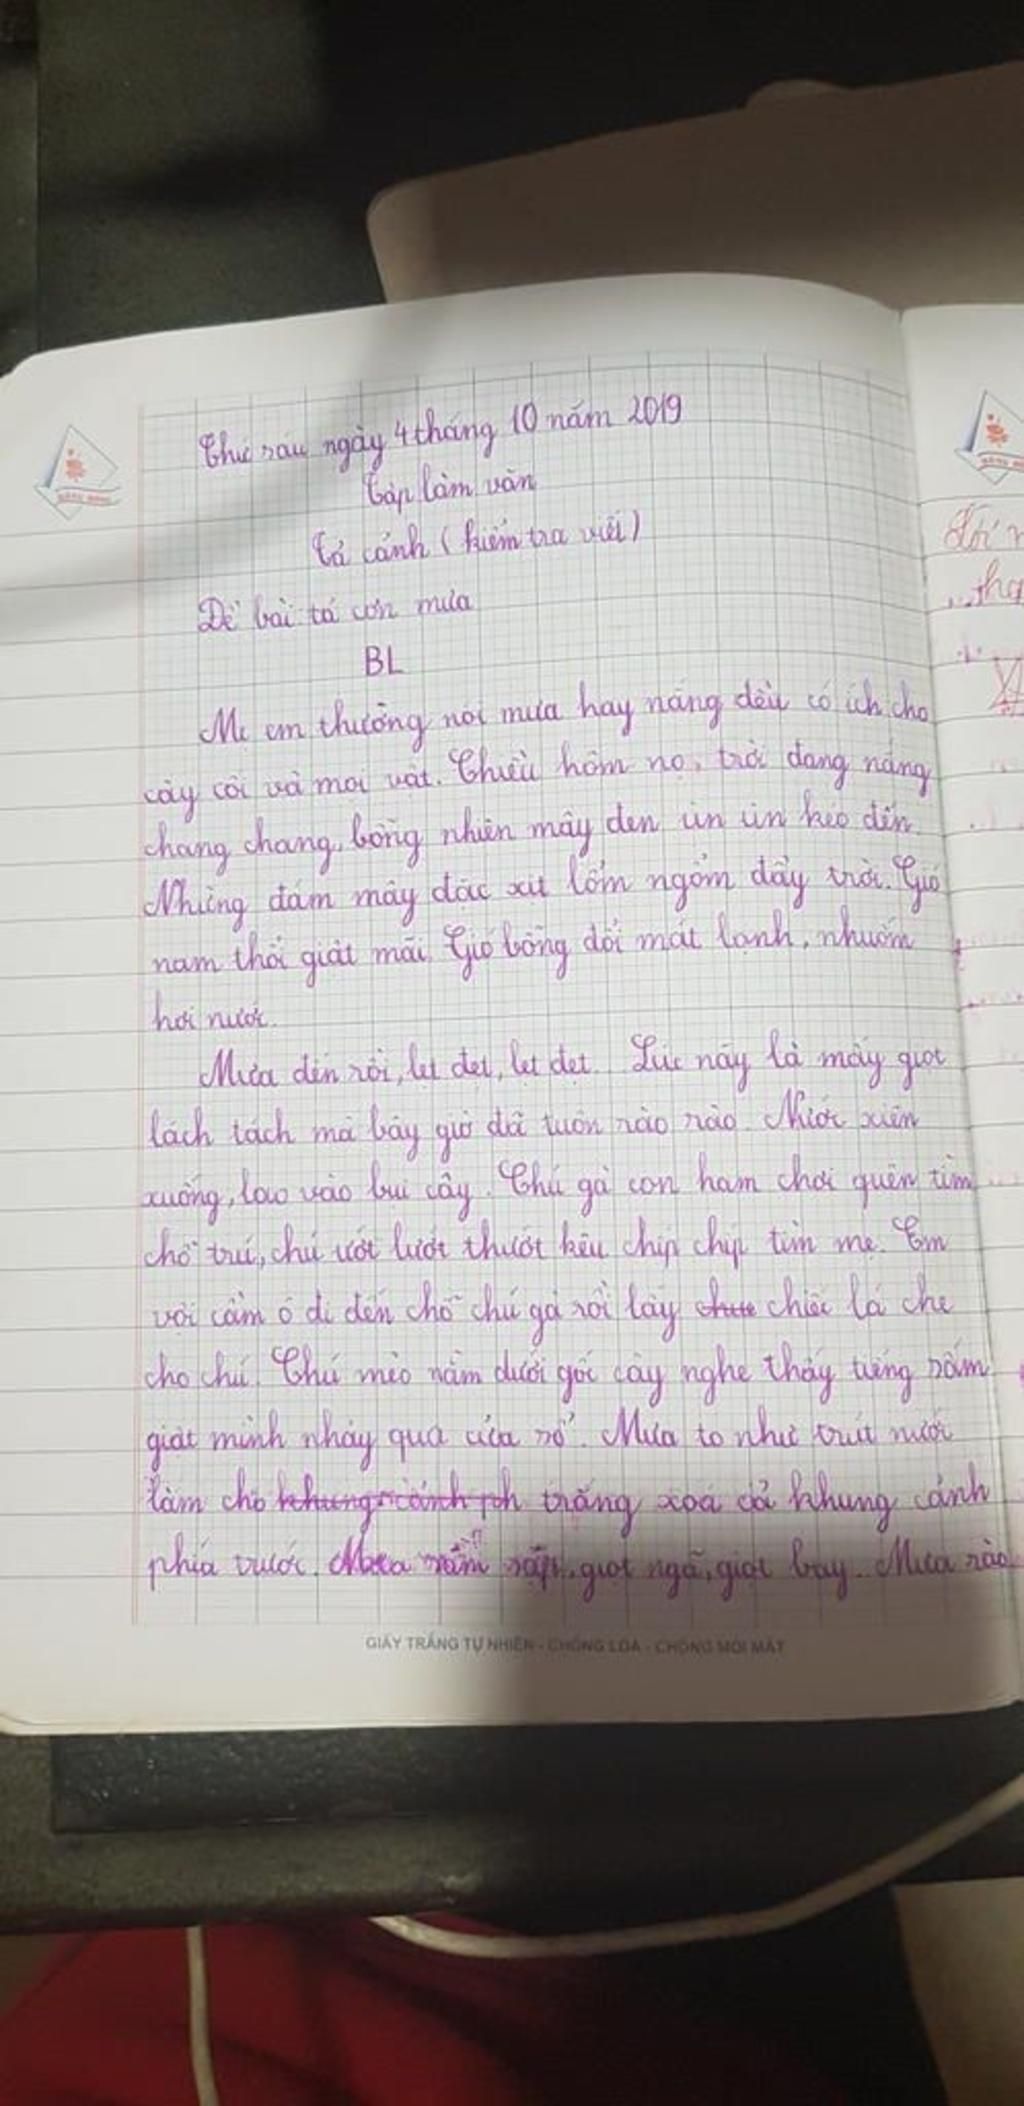 Thứ sau ngày 4 tháng 10 năm 2019
Tập làm văn
Tả cảnh (kiểm tra viết)
Đề bài tả cơn mưa
BL
Mẹ em thường nói mưa hay nắng đều có ích cho
cây cối và mọi vật. Chiều hôm nọ, trời đang nắng
chang chang, bỗng nhiên mây đen ùn ùn kéo đến.
Những đám mây đặc xịt lổm ngổm đầy trời. Gió
nam thổi giật mãi. Gió bỗng đổi mát lạnh, nhuốm
hơi nước.
Mưa đến rồi, lẹt đẹt, lẹt đẹt. Lúc nãy là mấy giọt
lách tách mà bây giờ đã tuôn rào rào. Nước xiên
xuống, lao vào bụi cây. Chú gà con ham chơi quên tìm
chỗ trú, chú ướt lướt thướt kêu chíp chíp tìm mẹ. Em
vội cầm ô đi đến chỗ chú gà rồi lấy chiếc lá che
cho chú. Chú mèo nằm dưới gốc cây nghe thấy tiếng sấm
giật mình nhảy qua cửa sổ. Mưa to như trút nước
làm cho khung cảnh ph trắng xoá cả khung cảnh
phía trước. Mưa sầm sập, giọt ngã, giọt bay. Mưa rào
GIẤY TRẮNG TỰ NHIÊN - CHỐNG LÓA - CHỐNG MỎI MẮT